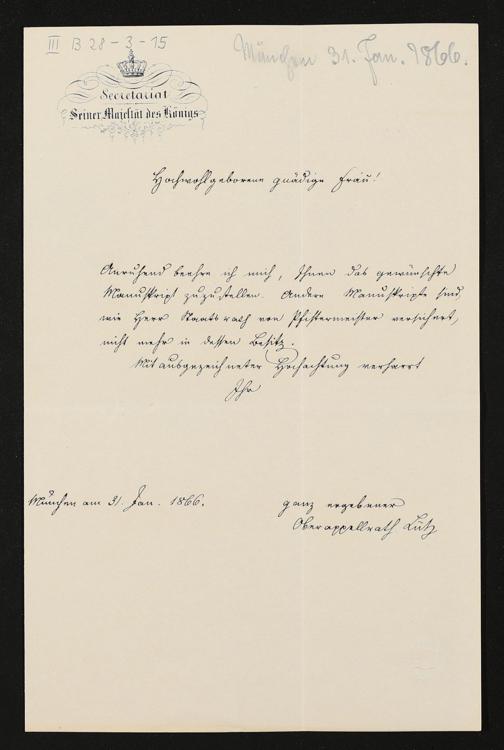 III B 28-3-15
München 31. Jan. 1866.
Secretariat
Seiner Majestät des Königs
Hochwohlgeborene gnädige Frau!
Anruhend beehre ich mich, Ihnen das gewünschte
Manuskript zuzustellen. Andere Manuskripte sind,
wie Herr Staatsrath von Pfistermeister versichert,
nicht mehr in dessen Besitz.
Mit ausgezeichneter Hochachtung verharrt
Ihr
München am 31. Jan. 1866.
ganz ergebener
Oberappellrath Lutz